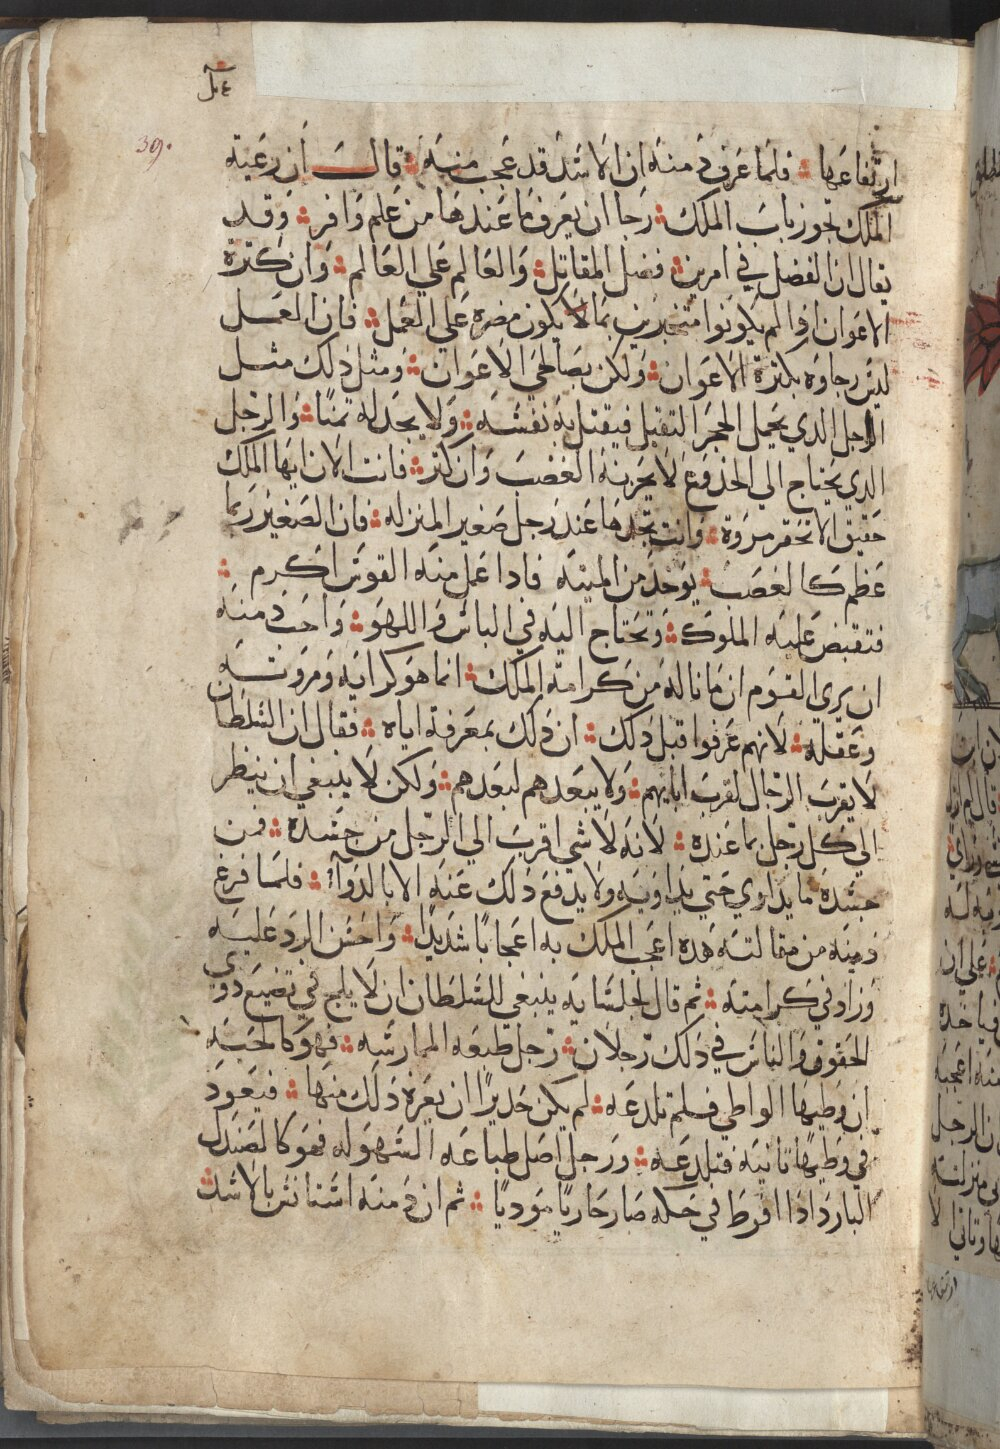 39.
ارتفاعها ؞ فلما عرف دمنه ان الاسد قد عجب منه ؞ قال ان رعية
الملك تجوز باب الملك ؞ رجا ان يعرف ما عندها من علم وافر ؞ وقد
يقال ان الفضل في امرين ؞ فضل المقاتل ؞ والعالم علي العالم ؞ وان كثرة
الاعوان اذا لم يكونوا متخبرين بما لا يكون مضره علي العمل ؞ فان العمل
ليس رجاوه بكثرة الاعوان ؞ ولكن بصالحي الاعوان ؞ ومثل ذلك مثل
الرجل الذي يحمل الحجر الثقيل فيقتل به نفسه ؞ ولا يجد له ثمنًا ؞ والرجل
الذي يحتاج الي الجذوع لا يجزيه الغضب وان كثر ؞ فانت الان ايها الملك
حقيق الا تحقر مروة ؞ وانت تجدها عند رجل صغير المنزله ؞ فان الصغير ربما
عظم كالعصب ؞ يوخد من الميته فاذا عمل منه القوس اكرم ؞
فتقبض عليه الملوك ؞ وتحتاج اليه في الباس واللهو ؞ واحب دمنه
ان يري القوم ان ما ناله من كرامة الملك ؞ انما هو لرايه ومروته
وعقله ؞ لانهم عرفوا قبل ذلك ؞ ان ذلك بمعرفة اياه ؞ فقال ان السلطان
لا يقرب الرجال لقرب ابايهم ؞ ولا يبعدهم لبعدهم ؞ ولكن لا ينبغي ان ينظر
الي كل رجل بما عنده ؞ لانه لا شي اقرب الي الرجل من جسده ؞ فمن
جسده ما يداوي حتي يداويه ولا يدفع ذلك عنه الا بالدوآء ؞ فلما فرغ
دمنه من مقالته هده اعجب الملك به اعجابًا شديدًا ؞ واحسن الرد عليه
وزاد في كرامته ؞ ثم قال لجلسايه ينبغي للسلطان ان لا يلج في تضييع ذوي
الحقوق والناس في ذلك رجلان ؞ رجل طبعه الممارسه ؞ فهو كالحيه
ان وطيها الواطي فلم تلدعه ؞ لم يكن جديرًا ان يغره ذلك منها ؞ فيعود
في وطيها تانيه فتلدعه ؞ ورجل اصل طباعه السهوله فهو كالصندل
البارد اذا افرط في حكه صار حاريًا موديًا ؞ ثم ان دمنه استانس بالاسد ؞